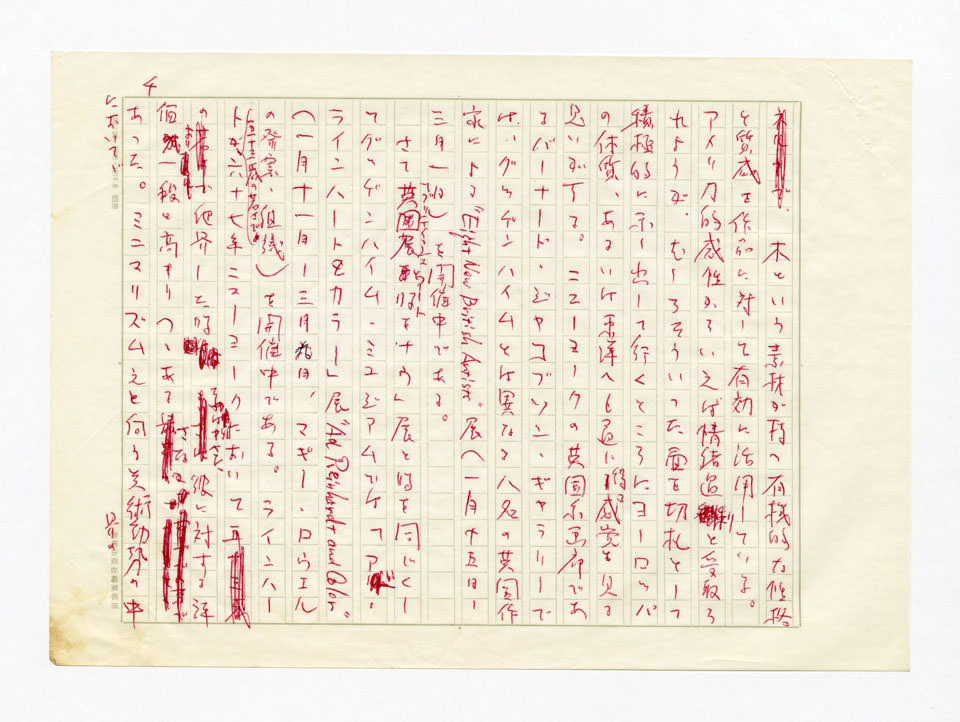 4
木という素材が持つ有機的な性格
と質感を作品に対して有効に活用している。
アメリカ的感性からいえば情緒過剰と受取ら
れようが、むしろそういった面を切札として
積極的に示し出して行くところにヨーロッパ
の体質、あるいは東洋へも通じ得る感覚を見る
思いがする。ニューヨークの英国系画廊であ
るバーナード・ジャコブソン・ギャラリーで
は、グッゲンハイムとは異なる八名の英国作
家による "Eight New British Artists" 展(一月十五日ー
三月一日)を開催中である。
さて英国展と時を同じくし
てグッゲンハイム・ミュジアムではアド・
ラインハートとカラー」展 "Ad Reinhardt and Color"
(一月十一日ー三月九日、マギー・ロウエル
の発案、組織)を開催中である。ラインハー
トが六十七年ニューヨークにおいて
五十三歳の若さで
の他界した時 彼に対する評
価は一段と高まりつゝある
あった。ミニマリズムえと向う美術動勢の中
において